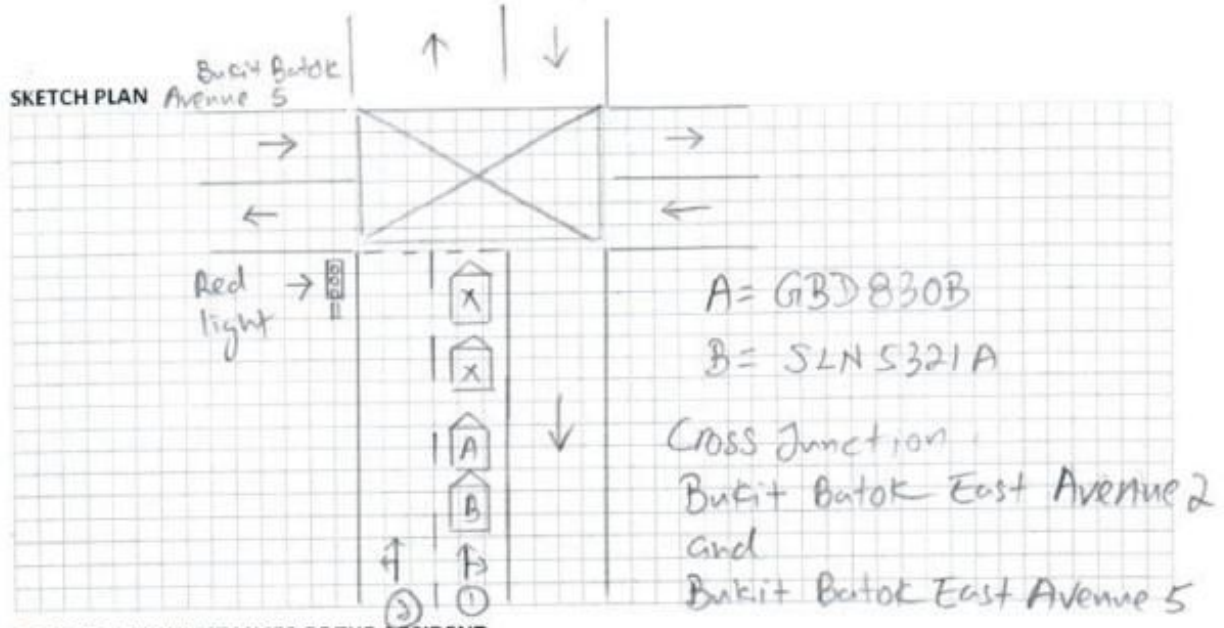 Bukit Batok
SKETCH PLAN Avenue 5
Red
light
X
X
A
B
2 1
A = GBD830B
B = SLN5321A
Cross Junction
Bukit Batok East Avenue 2
and
Bukit Batok East Avenue 5